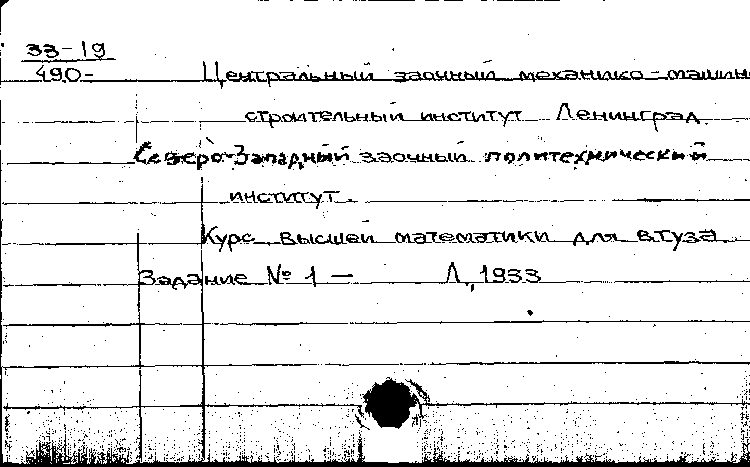 33-19
490-
Центральный заочный механико-машин
строительный институт Ленинград.
Северо-Западный заочный политехнический
институт.
Курс высшей математики для втуза.
Задание № 1 — Л., 1933